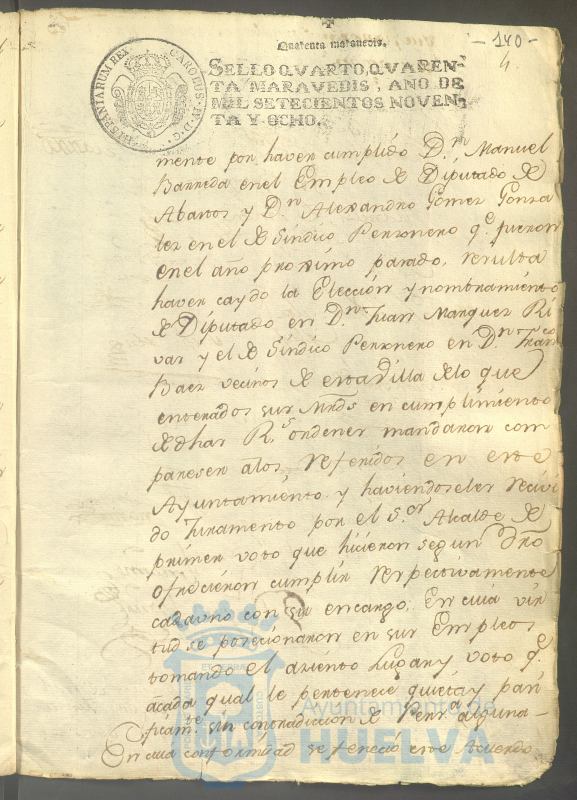 Quarenta maravedis.
- 140 -
4.
HISPANIARUM REX CAROLUS IV D G
SELLO QVARTO, QVAREN-
TA MARAVEDIS, AÑO DE
MIL SETECIENTOS NOVEN-
TA Y OCHO.
mente por haver cumplido D.n Manuel
Barreda en el Empleo de Diputado de
Abastos y D.n Alexandro Gomez Gonza
lez en el de Sindico Personero q.e fueron
en el año proximo pasado, resulta
haver caydo la Elección y nombramiento
de Diputado en D.n Juan Marquez Ri
vas y el de Sindico Personero en D.n Fran.co
Baez vecinos de esta Villa de lo que
enterados sus Mrds en cumplimiento
de dhas R.s ordenes mandaron com
parecer a los referidos en este
Ayuntamiento y haviendoseles recivi
do Juramento por el S.or Alcalde de
primer voto que hicieron segun dro
ofrecieron cumplir respectivamente
cada uno con su encargo, En cuia vir
tud se posecionaron en sus Empleos
tomando el asiento Lugar y voto q.e
a cada qual le pertenece quieta y paci
ficam.te sin contradicion de Pers.a alguna-
En cuia conformidad se feneció este Acuerdo
Ayuntamiento de
HUELVA